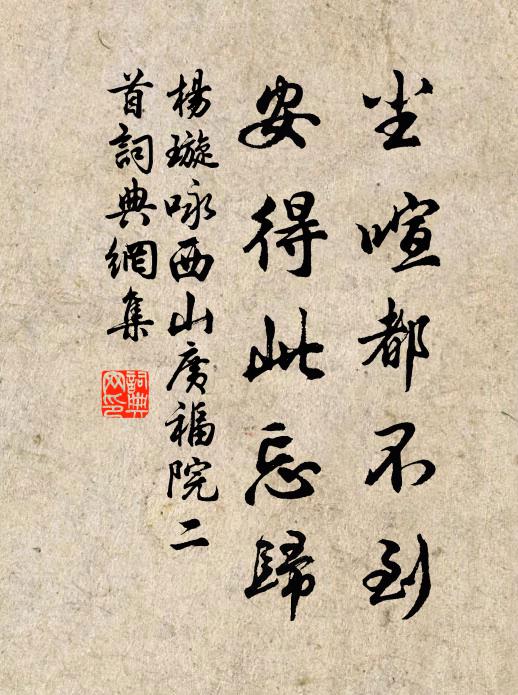 尘喧都不到
安得此忘歸
楊璇咏西山廣福院二
首詞典網集
詞典
网印